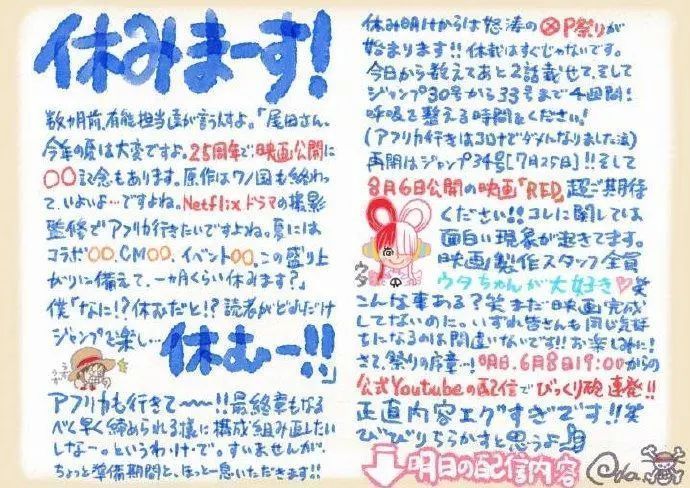 休みまーす!
数ヶ月前、有能担当達が言うんすよ。「尾田さん、
今年の夏は大変ですよ。25周年で映画公開に
〇〇記念もあります。原作はワノ国も終わっ
て、いよいよ…ですよね。Netflixドラマの撮影
監修でアフリカ行きたいですよね。夏には
コラボ〇〇、CM〇〇、イベント〇〇。この盛り上
がりに備えて、一ヵ月くらい休みます?」
僕「なに!?休むだと!?読者がどれだけ
ジャンプを楽し…休むー!!」
アフリカも行きて〜〜!!最終章もなる
べく早く締められる様に構成組み直したい
しなー。というわけで。すいませんが、
ちょっと準備期間と、ほっと一息いただきます!!
休み明けからは怒涛のⓍP祭りが
始まります!!休載はすぐじゃないです。
今日から数えてあと2話載せて、そして
ジャンプ30号から33号まで4週間!
呼吸を整える時間をください!
(アフリカ行きはコロナでダメんなりました泣)
再開はジャンプ34号[7月25日]!!そして
8月6日公開の映画「RED」超ご期待
ください!!コレに関しては
面白い現象が起きてます。
映画製作スタッフ全員
ウタちゃんが大好き♡笑
こんな事ある?笑まだ映画完成
してないのに。いずれ皆さんも同じ気持ち
になるのは間違いないです!!お楽しみに!
さて、祭りの序章…!明日、6月8日19:00からの
公式Youtubeの配信でびっくり砲連発!!
正直内容エグすぎです!!笑
びびりちらかすと思うよ
ウタ
明日の配信内容
Oda.